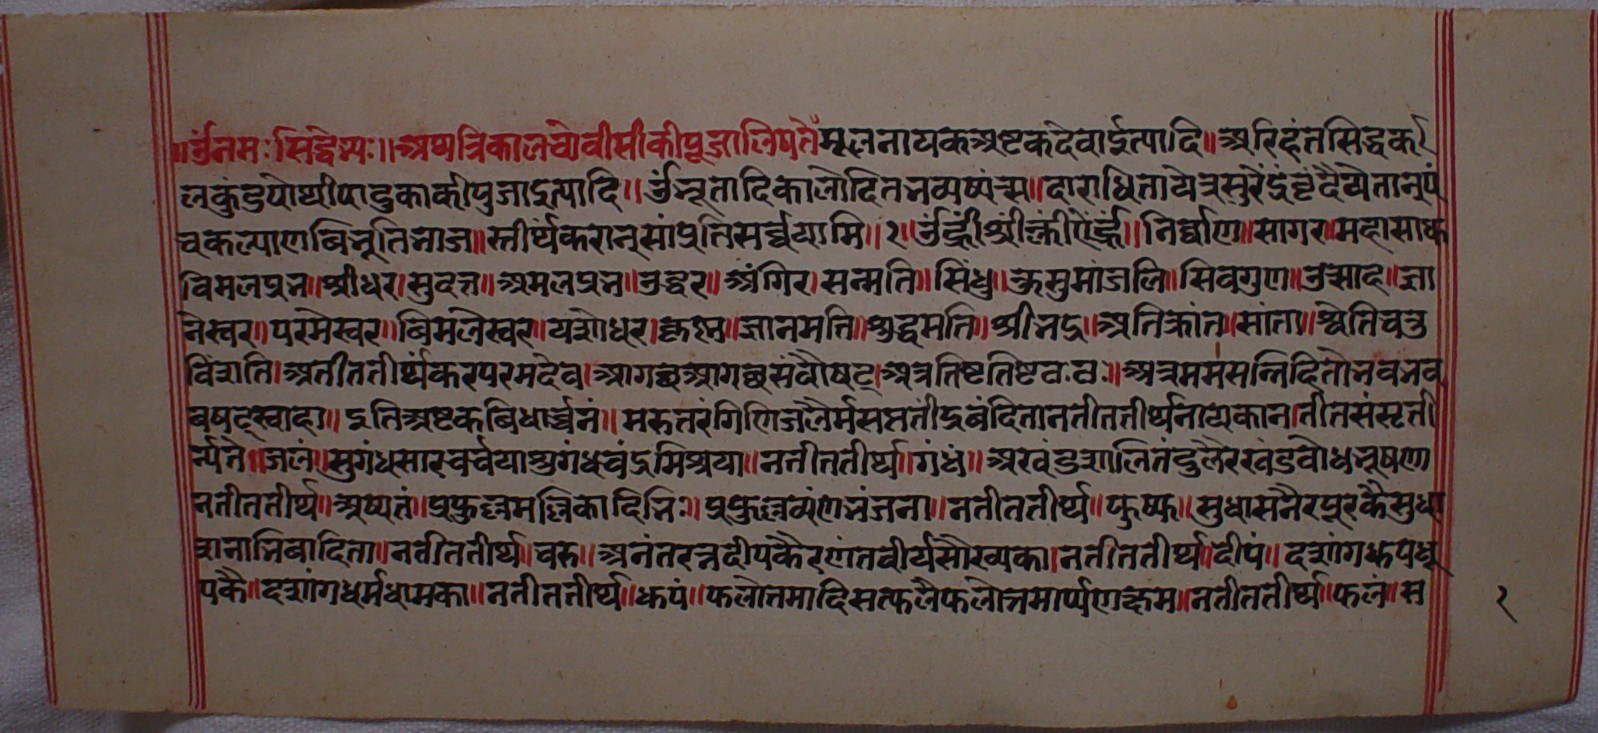 ॥ॐनमः सिद्धेभ्यः॥अथत्रिकालचोवीसीकीपूजालिष्यते मूलनायकअष्टकदेवाईत्यादि॥अरिहंतसिद्धक
लकुंडुपोथीपादुकाकीपुजाइत्यादि॥ॐभूतादिकालोदितभव्यष्यंस॥दाराधितायेत्रसुरेंद्रवृंदैयेतानुपं
चकल्याणबिभूतिभाज॥स्तीर्थकरानुसांप्रतिसर्च्चयामि॥१॥ॐह्रींश्रींक्लींऐंर्ह्रं॥निर्व्वाण॥सागर॥महासाध
विमलप्रभ॥श्रीधर।सुदत्त॥अमलप्रभ॥उद्धर॥अंगिर।सन्मति॥सिंधु॥कुसुमांजलि॥सिवगुण॥उत्साह॥ज्ञा
नेस्वर॥परमेस्वर॥बिमलेस्वर॥यशोधर।कृष्ण॥ज्ञानमति॥शुद्धमति॥श्रीभद्र॥अतिक्रांत॥सांता॥श्चेतिचतु
विंशति।अतीततीर्थंकरपरमदेव।आगछआगछसंवौषट्।अत्रतिष्टतिष्टठ.ठः॥अत्रममसन्निहितोभवभव
वषट्स्वाहा॥इतिअष्टकबिधार्च्चनं॥मरुतरंगिणिजलैर्मसप्ततींद्रबंदितानतीततीर्थनायकान।तीतसंसृती
र्न्यते॥जलं॥सुगंधसारचर्चयाशुगंधचंद्रमिश्रया॥नतीततीर्थ॥गंधं॥अखंडशालितंदुलैरखंडवोधभूषण
नतीततीर्थ॥अष्यतं॥प्रफुल्लमल्लिकादिभिः॥प्रफुल्लव्यंगभंजना॥नतीततीर्थ॥फुष्फ॥सुधासनैरपूरकैसुधा
शनाभिबादिता॥नतीततीर्थ॥चरु॥अनंतरत्नदीपकैरणंतवीर्यसौख्यका।नतीततीर्थ॥दीपं॥दशांगधूपधू
पकै॥दशांगधर्मधामका॥नतीततीर्थ॥धूपं॥फलोत्तमादिसत्फलैफलोत्तमार्प्पणक्षम॥नतीततीर्थ॥फल॥स
१